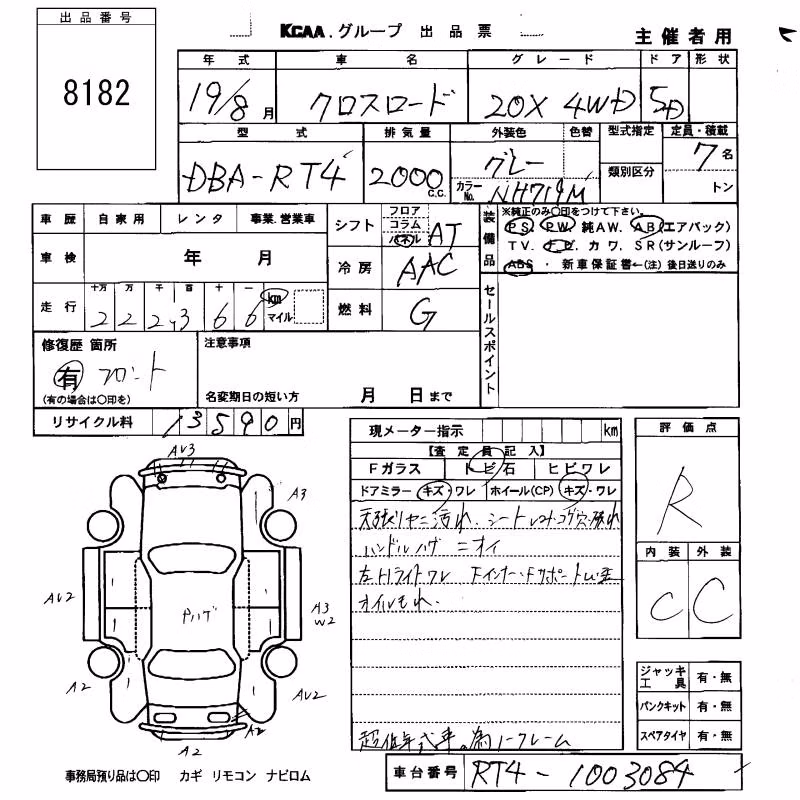 出品番号
8182
KCAA.グループ 出品票
主催者用
年式 車名 グレード ドア 形状
19/8月 クロスロード 20X 4WD 5D
型式 排気量 外装色 色替 型式指定 定員・積載
DBA-RT4 2000 C.C. グレー カラーNo. NH719M 類別区分 7名
トン
車歴 自家用 レンタ 事業.営業車
シフト フロア コラム パネル AT
装備品 ※純正のみ〇印をつけて下さい。
PS PW 純AW. AB(エアバック)
TV. カワ. SR(サンルーフ)
ABS・新車保証書←(注) 後日送りのみ
車検 年 月
冷房 AAC
走行 十万 万 千 百 十 一
222366 km マイル
燃料 G
セールスポイント
修復歴 箇所
有 フロント
(有の場合は〇印を)
注意事項
名変期日の短い方 月 日まで
リサイクル料 13590円
現メーター指示 km
【査定員記入】
Fガラス トビ石 ヒビワレ
ドアミラー キズ・ワレ ホイール(CP) キズ・ワレ
天張りヤニ汚れ. シート コゲ穴
ハンドルハゲ ニオイ
左Hライトワレ Fインナー・Fサポート
オイルもれ.
超低年式車の為ノークレーム
評価点
R
内装 外装
C C
AV3
A3
AV2
A3
W2
Pハゲ
A2
AV2
A2
A2
ジャッキ工具 有・無
パンクキット 有・無
スペアタイヤ 有・無
事務局預り品は〇印 カギ リモコン ナビロム
車台番号 RT4-1003084